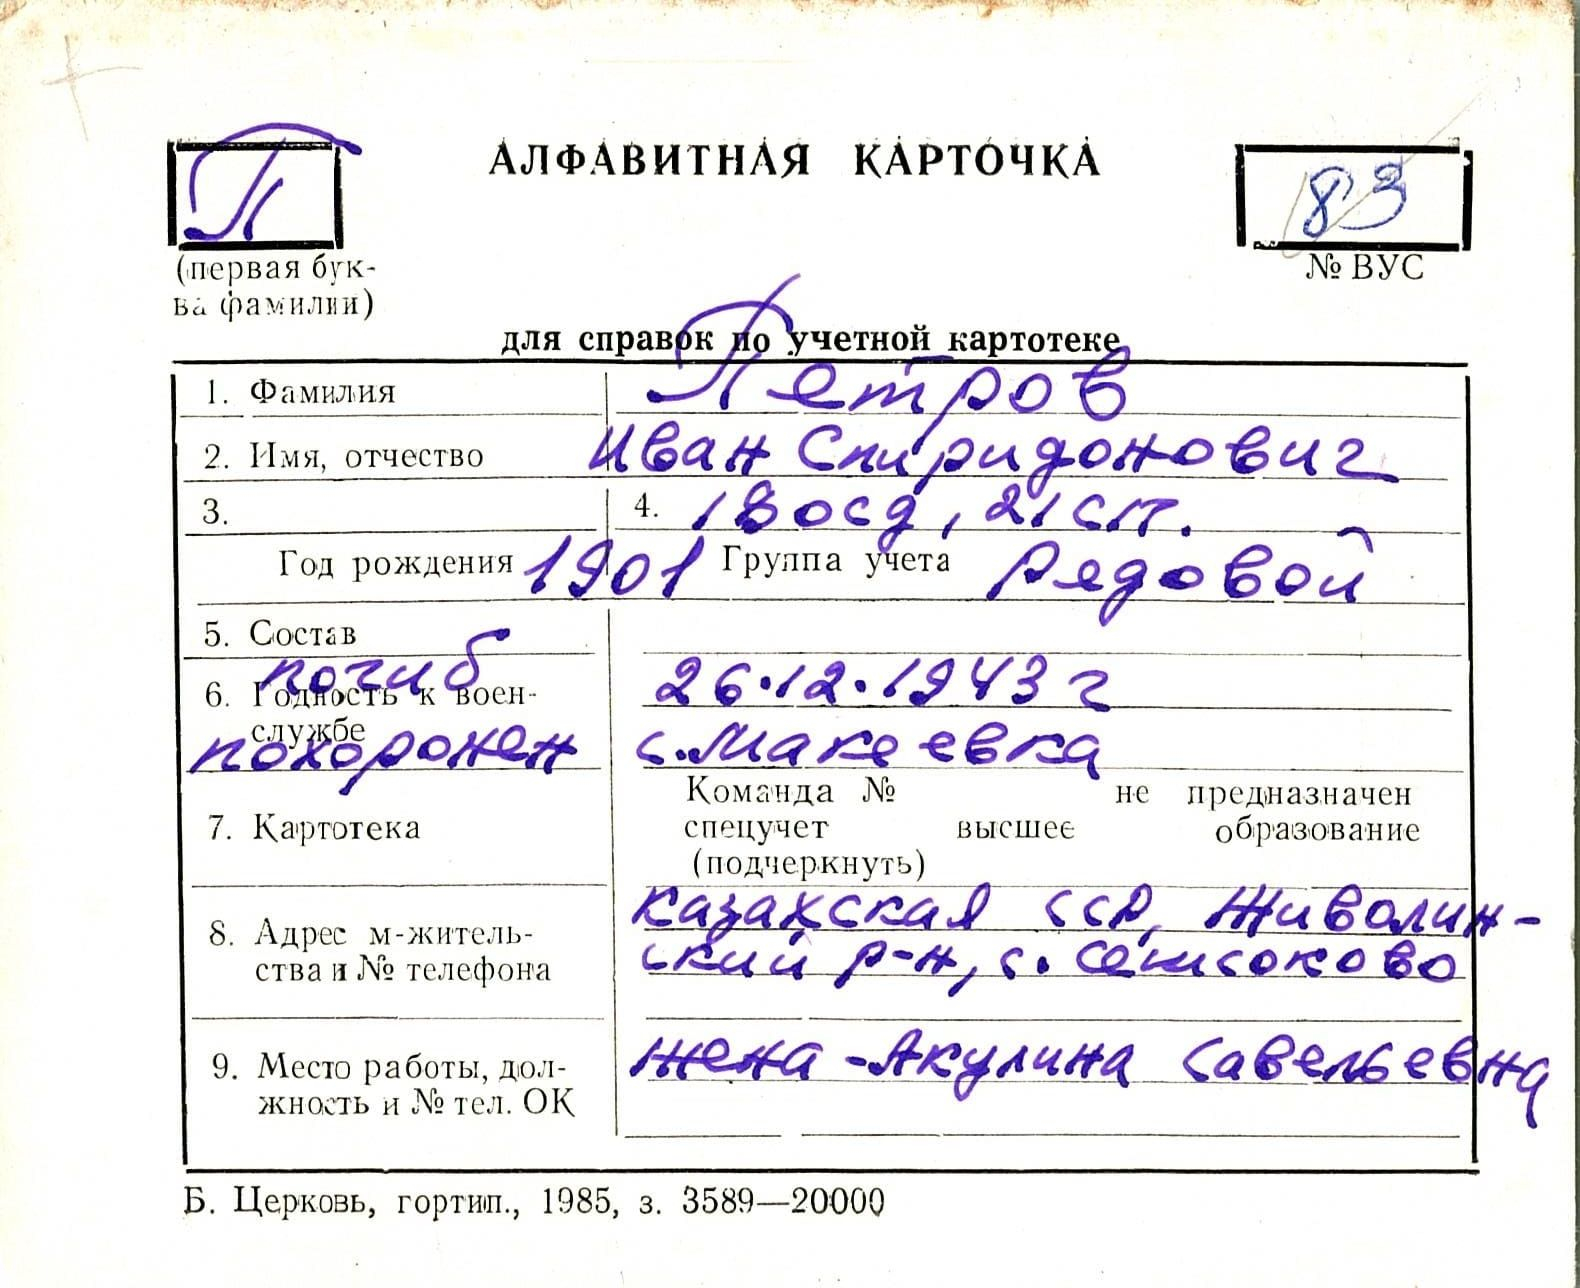 П
АЛФАВИТНАЯ КАРТОЧКА
83
(первая бук-
ва фамилии)
№ ВУС
для справок по учетной картотеке
1. Фамилия Петров
2. Имя, отчество Иван Спиридонович
3. 4. 180 сд, 21 сп.
Год рождения 1901 Группа учета Рядовой
5. Состав
погиб 26.12.1943 г
6. Годность к воен-
службе
похоронен с. Макеевка
7. Картотека
Команда № не предназначен
спецучет высшее образование
(подчеркнуть)
8. Адрес м-житель-
ства и № телефона
Казахская ССР, Живолин-
ский р-н, с.
9. Место работы, дол-
жность и № тел. ОК
жена - Акулина Савельевна
Б. Церковь, гортип., 1985, з. 3589—20000